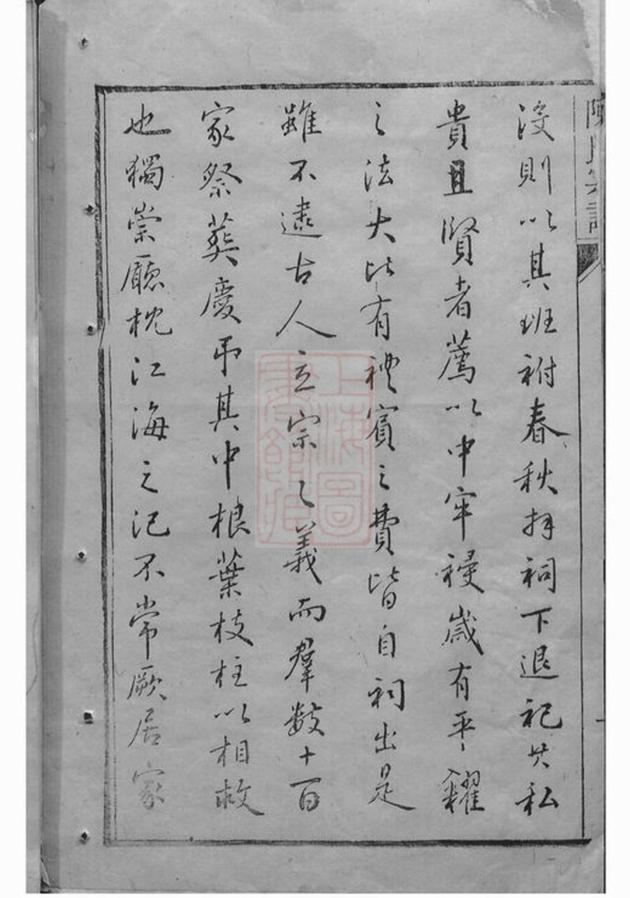 沒則以其班祔春秋拜祠下退祀其私
貴且賢者薦以中牢祲歲有平糶
之法大比有禮賓之費皆自祠出是
雖不逮古人立宗之義而羣數十百
家祭葬慶弔其中根葉枝柱以相救
也獨崇廳枕江海之汜不常厥居家
陳氏宗譜
上海圖書館藏